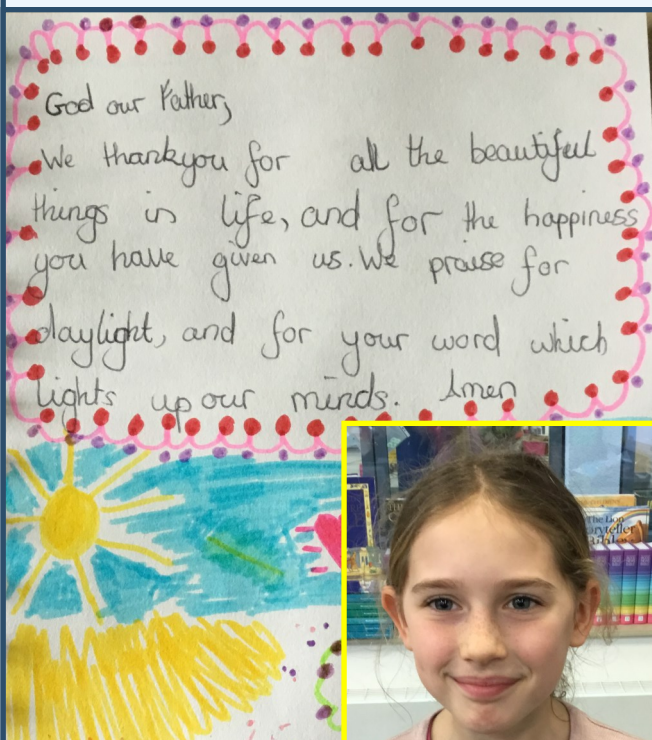 God our Father,
We thankyou for all the beautiful
things in life, and for the happiness
you have given us. We praise for
daylight, and for your word which
lights up our minds. Amen
The Lion
Storyteller
Bible